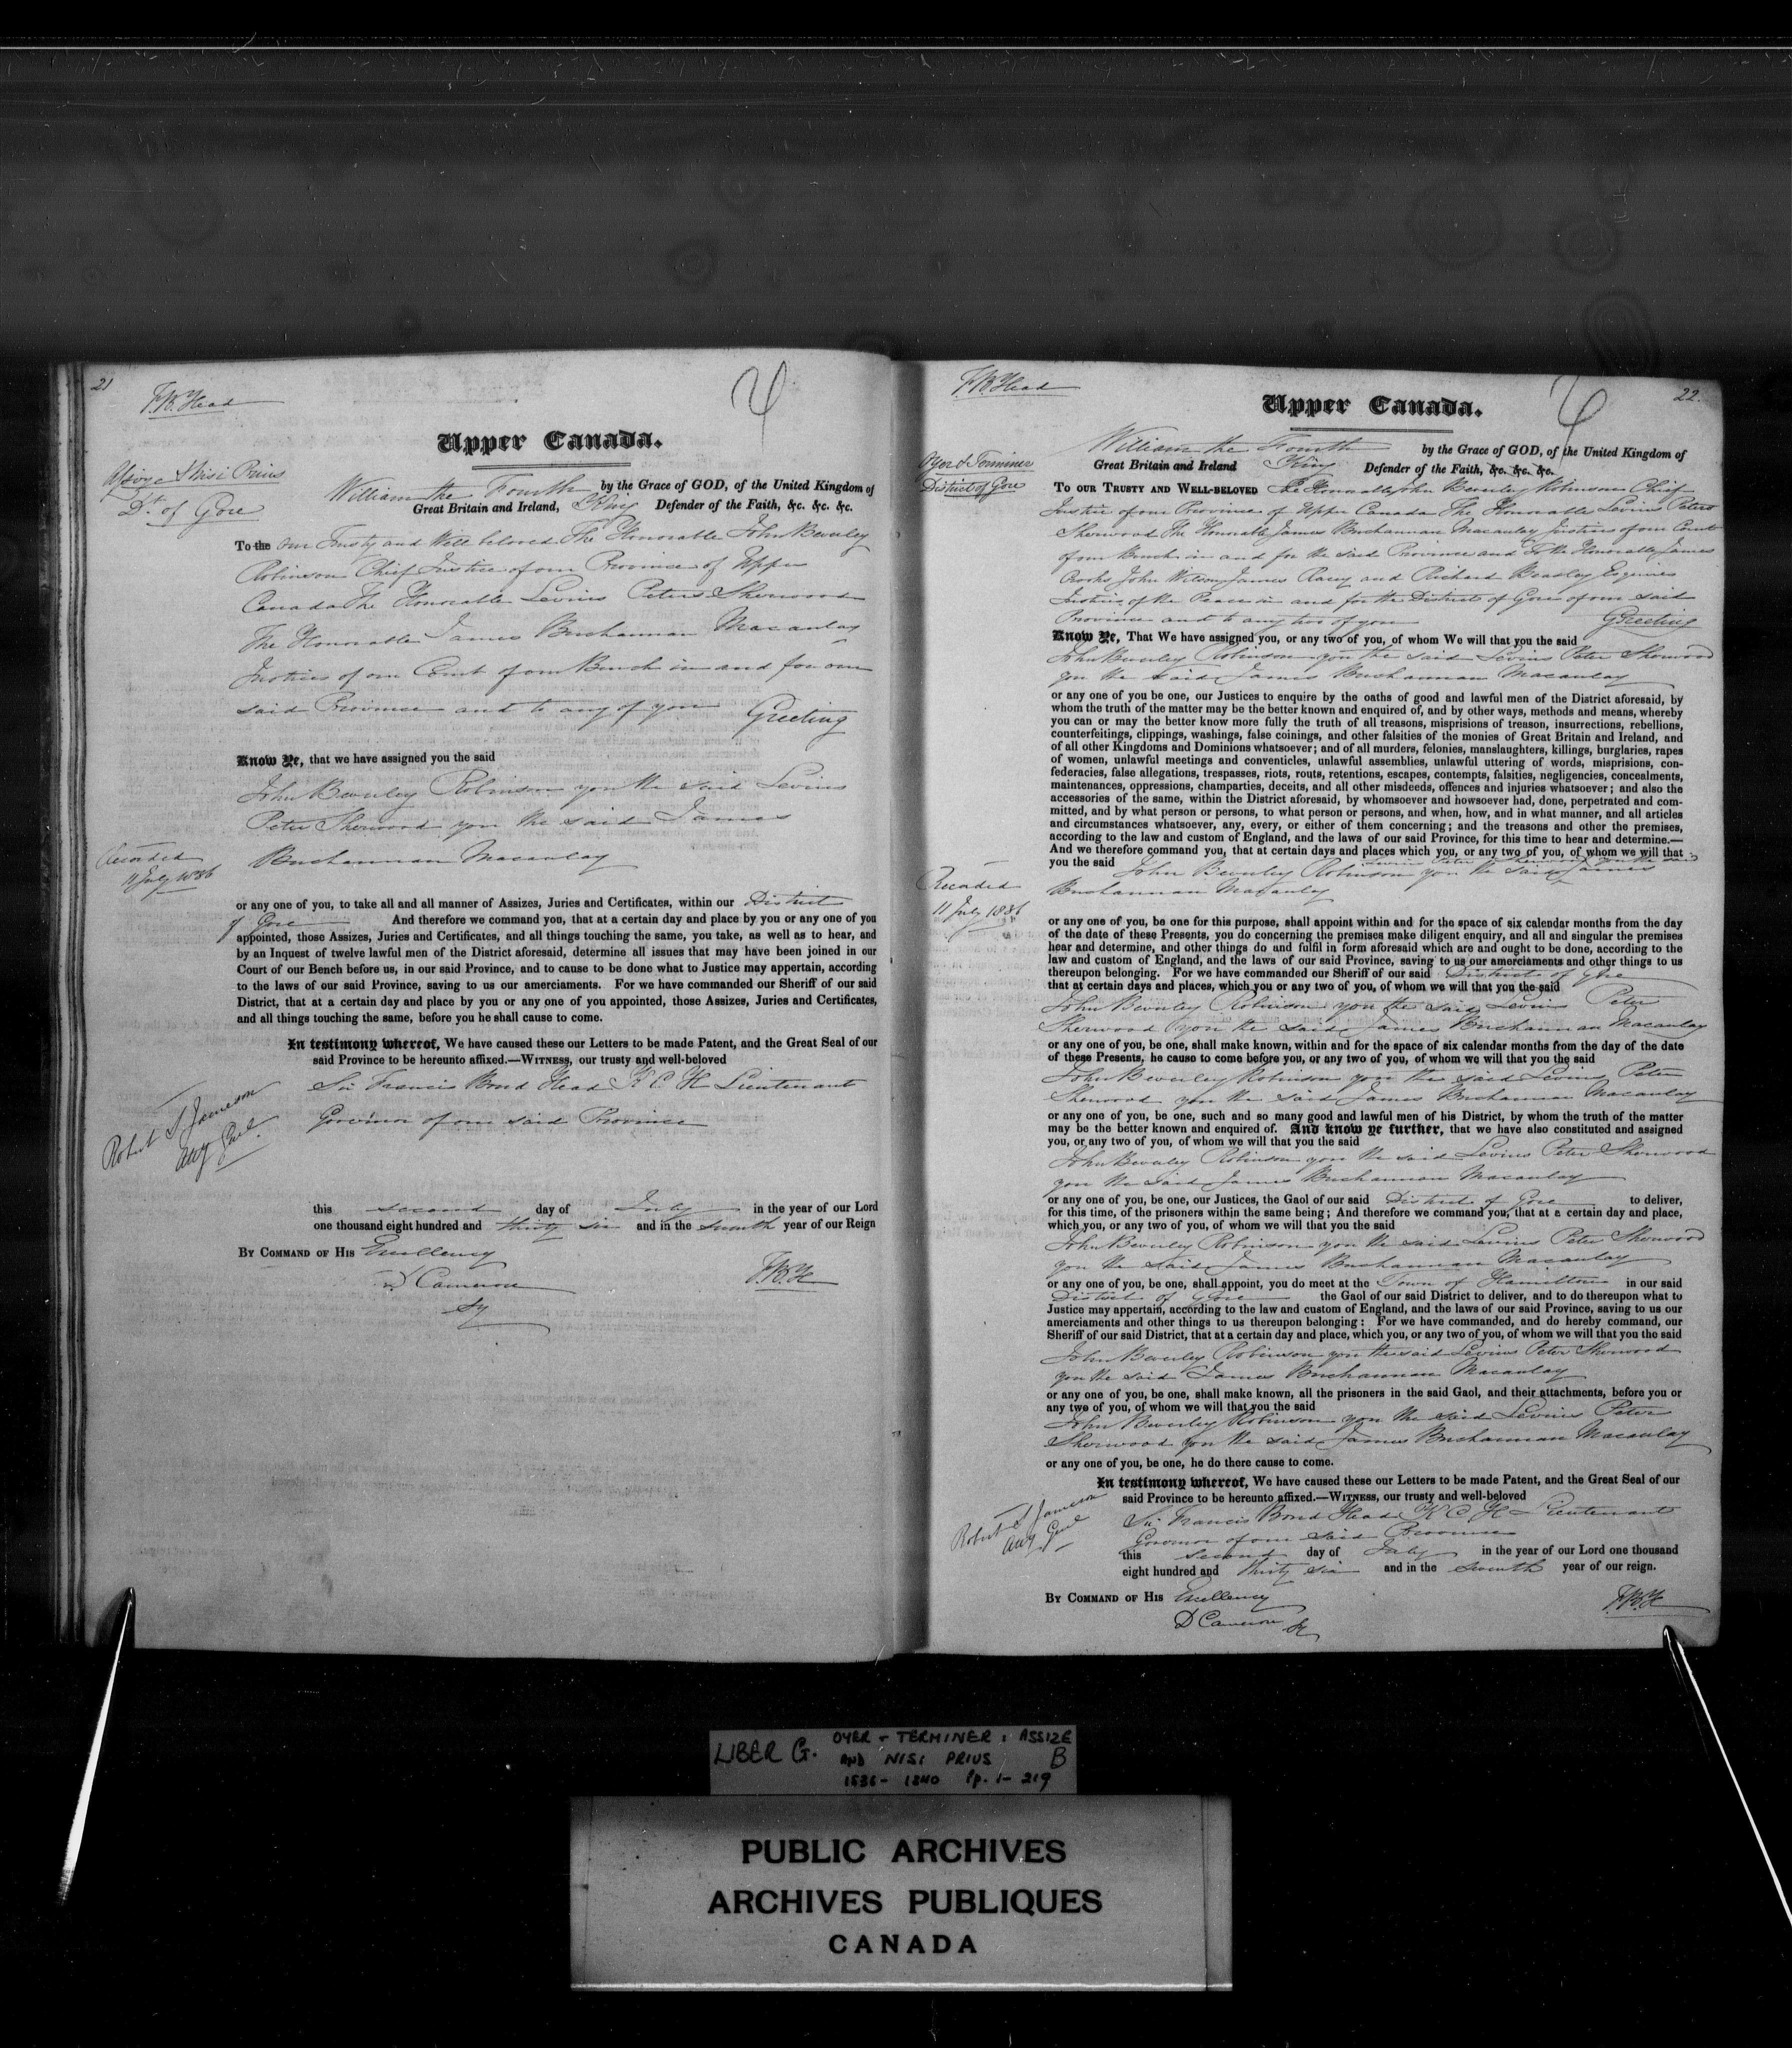 21
F. B. Head
Upper Canada.
Assize & Nisi Prius
Dt. of Gore
William the Fourth by the Grace of GOD, of the United Kingdom of
Great Britain and Ireland, King Defender of the Faith, &c. &c. &c.
To the Our Trusty and Well beloved The Honorable John Beverley
Robinson Chief Justice of our Province of Upper
Canada The Honorable Levius Peters Sherwood
The Honorable James Buchannan Macaulay
Justices of our Court of our Bench in and for our
said Province and to any of you Greeting
Know Ye, that we have assigned you the said
John Beverley Robinson you the said Levius
Peter Sherwood you the said James
Buchannan Macaulay
Recorded
11 July 1836
or any one of you, to take all and all manner of Assizes, Juries and Certificates, within our District
of Gore And therefore we command you, that at a certain day and place by you or any one of you
appointed, those Assizes, Juries and Certificates, and all things touching the same, you take, as well as to hear, and
by an Inquest of twelve lawful men of the District aforesaid, determine all issues that may have been joined in our
Court of our Bench before us, in our said Province, and to cause to be done what to Justice may appertain, according
to the laws of our said Province, saving to us our amerciaments. For we have commanded our Sheriff of our said
District, that at a certain day and place by you or any one of you appointed, those Assizes, Juries and Certificates,
and all things touching the same, before you he shall cause to come.
In testimony whereof, We have caused these our Letters to be made Patent, and the Great Seal of our
said Province to be hereunto affixed.—WITNESS, our trusty and well-beloved
Sir Francis Bond Head K C H Lieutenant
Governor of our said Province
Robert S Jameson
Atty Genl.
this second day of July in the year of our Lord
one thousand eight hundred and thirty six and in the seventh year of our Reign
BY COMMAND OF HIS Excellency
D Cameron
Sy
F.B.H
22.
F. B. Head
Upper Canada.
Oyer & Terminer
District of Gore
William the Fourth by the Grace of GOD, of the United Kingdom of
Great Britain and Ireland King Defender of the Faith, &c. &c. &c.
TO OUR TRUSTY AND WELL-BELOVED The Honorable John Beverley Robinson Chief
Justice of our Province of Upper Canada The Honorable Levius Peters
Sherwood The Honorable James Buchannan Macaulay Justices of our Court
of our Bench in and for the said Province and to the Honorable James
Crooks John Wilson James Racey and Richard Beasley Esquires
Justices of the Peace in and for the District of Gore of our said
Province and to any two of you Greeting
Know Ye, That We have assigned you, or any two of you, of whom We will that you the said
John Beverley Robinson you the said Levius Peter Sherwood
you the said James Buchannan Macaulay
or any one of you be one, our Justices to enquire by the oaths of good and lawful men of the District aforesaid, by
whom the truth of the matter may be the better known and enquired of, and by other ways, methods and means, whereby
you can or may the better know more fully the truth of all treasons, misprisions of treason, insurrections, rebellions,
counterfeitings, clippings, washings, false coinings, and other falsities of the monies of Great Britain and Ireland, and
of all other Kingdoms and Dominions whatsoever; and of all murders, felonies, manslaughters, killings, burglaries, rapes
of women, unlawful meetings and conventicles, unlawful assemblies, unlawful uttering of words, misprisions, con-
federacies, false allegations, trespasses, riots, routs, retentions, escapes, contempts, falsities, negligencies, concealments,
maintenances, oppressions, champarties, deceits, and all other misdeeds, offences and injuries whatsoever; and also the
accessories of the same, within the District aforesaid, by whomsoever and howsoever had, done, perpetrated and com-
mitted, and by what person or persons, to what person or persons, and when, how, and in what manner, and all articles
and circumstances whatsoever, any, every, or either of them concerning; and the treasons and other the premises,
according to the law and custom of England, and the laws of our said Province, for this time to hear and determine.—
And we therefore command you, that at certain days and places which you, or any two of you, of whom we will that
Levius Peter Sherwood you the said
you the said John Beverley Robinson you the said James
Buchannan Macaulay
Recorded
11 July 1836
or any one of you, be one for this purpose, shall appoint within and for the space of six calendar months from the day
of the date of these Presents, you do concerning the premises make diligent enquiry, and all and singular the premises
hear and determine, and other things do and fulfil in form aforesaid which are and ought to be done, according to the
law and custom of England, and the laws of our said Province, saving to us our amerciaments and other things to us
thereupon belonging. For we have commanded our Sheriff of our said District of Gore
that at certain days and places, which you or any two of you, of whom we will that you the said
John Beverley Robinson you the said Levius Peter
Sherwood you the said James Buchannan Macaulay
or any one of you, be one, shall make known, within and for the space of six calendar months from the day of the date
of these Presents, he cause to come before you, or any two of you, of whom we will that you the said
John Beverley Robinson you the said Levius Peter
Sherwood you the said James Buchannan Macaulay
or any one of you, be one, such and so many good and lawful men of his District, by whom the truth of the matter
may be the better known and enquired of. And know ye further, that we have also constituted and assigned
you, or any two of you, of whom we will that you the said
John Beverley Robinson you the said Levius Peter Sherwood
you the said James Buchannan Macaulay
or any one of you, be one, our Justices, the Gaol of our said District of Gore to deliver,
for this time, of the prisoners within the same being; And therefore we command you, that at a certain day and place,
which you, or any two of you, of whom we will that you the said
John Beverley Robinson you the said Levius Peter Sherwood
you the said James Buchannan Macaulay
or any one of you, be one, shall appoint, you do meet at the Town of Hamilton in our said
District of Gore the Gaol of our said District to deliver, and to do thereupon what to
Justice may appertain, according to the law and custom of England, and the laws of our said Province, saving to us our
amerciaments and other things to us thereupon belonging: For we have commanded, and do hereby command, our
Sheriff of our said District, that at a certain day and place, which you, or any two of you, of whom we will that you the said
John Beverley Robinson you the said Levius Peter Sherwood
you the said James Buchannan Macaulay
or any one of you, be one, shall make known, all the prisoners in the said Gaol, and their attachments, before you or
any two of you, of whom we will that you the said
John Beverley Robinson you the said Levius Peter
Sherwood you the said James Buchannan Macaulay
or any one of you, be one, he do there cause to come.
In testimony whereof, We have caused these our Letters to be made Patent, and the Great Seal of our
said Province to be hereunto affixed.—WITNESS, our trusty and well-beloved
Sir Francis Bond Head K C H Lieutenant
Governor of our said Province
Robert S Jameson
Atty Genl
this second day of July in the year of our Lord one thousand
eight hundred and thirty six and in the seventh year of our reign.
BY COMMAND OF HIS Excellency
D Cameron Sy
F.B.H
LIBER G. OYER - TERMINER: ASSIZE
AND NISI PRIUS B
1836- 1840 Pp. 1- 219
PUBLIC ARCHIVES
ARCHIVES PUBLIQUES
CANADA